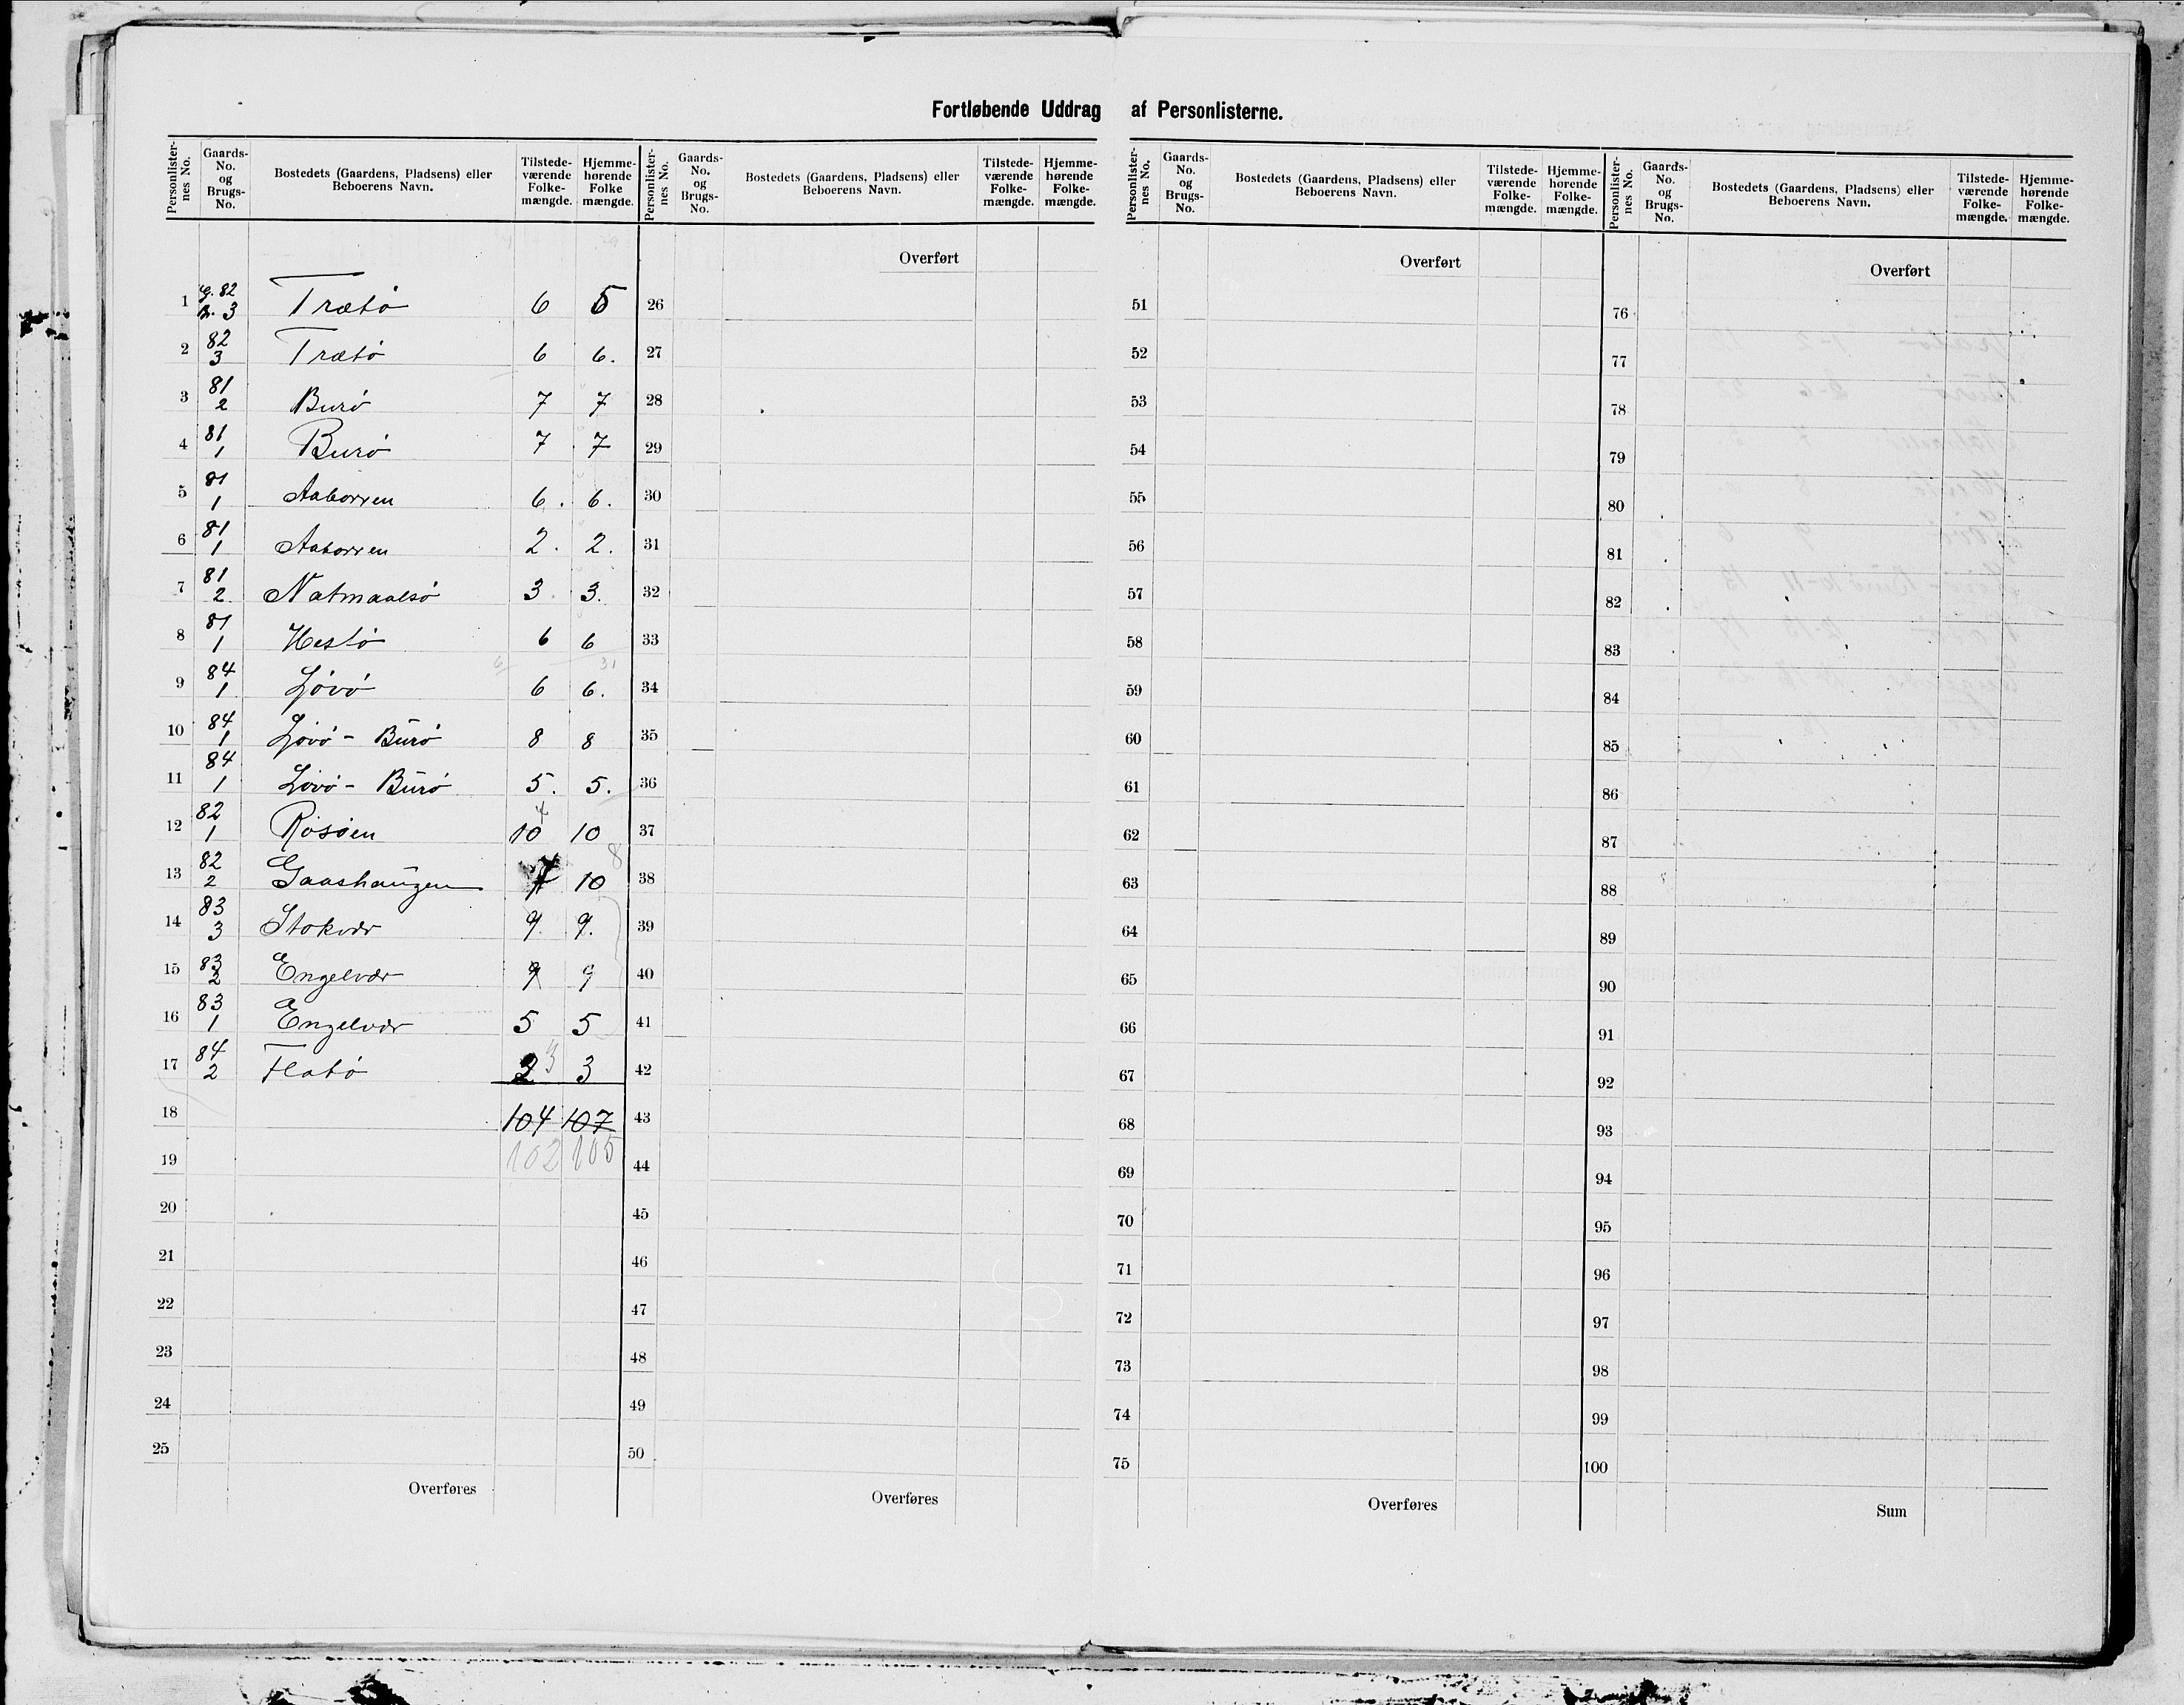 Fortløbende Uddrag af Personlisterne.
Personlister-nes No. Gaards-No. og Brugs-No. Bostedets (Gaardens, Pladsens) eller Beboerens Navn. Tilstede-værende Folke-mængde. Hjemme-hørende Folke mængde.
Personlister-nes No. Gaards-No. og Brugs-No. Bostedets (Gaardens, Pladsens) eller Beboerens Navn. Tilstede-værende Folke-mængde. Hjemme-hørende Folke-mængde.
Personlister-nes No. Gaards-No. og Brugs-No. Bostedets (Gaardens, Pladsens) eller Beboerens Navn. Tilstede-værende Folke-mængde. Hjemme-hørende Folke-mængde.
Personlister-nes No. Gaards-No. og Brugs-No. Bostedets (Gaardens, Pladsens) eller Beboerens Navn. Tilstede-værende Folke-mængde. Hjemme-hørende Folke-mængde.
Overført Overført Overført
1 G. 82 B. 3 Trætø 6 5 26 51 76
2 82 3 Trætø 6 6. 27 52 77
3 81 2 Burø 7 7 28 53 78
4 81 1 Burø 7 7 29 54 79
5 81 1 Aaborren 6. 6. 30 55 80
6 81 1 Aaborren 2. 2. 31 56 81
7 81 2 Natmaalsø 3. 3. 32 57 82
8 81 1 Hestø 6 6 33 58 83
9 84 1 Løvø 6 6. 34 59 84
10 84 1 Løvø - Burø 8 8 35 60 85
11 84 1 Løvø - Burø 5. 5. 36 61 86
12 82 1 Rosøen 10 10 37 62 87
13 82 2 Gaashaugen 7 10 38 63 88
14 83 3 Stokvær 9. 9. 39 64 89
15 83 2 Engelvær 9 9 40 65 90
16 83 1 Engelvær 5 5 41 66 91
17 84 2 Flatø 2 3 3 42 67 92
18 104 107 43 68 93
19 102 105 44 69 94
20 45 70 95
21 46 71 96
22 47 72 97
23 48 73 98
24 49 74 99
25 50 75 100
Overføres Overføres Overføres Sum